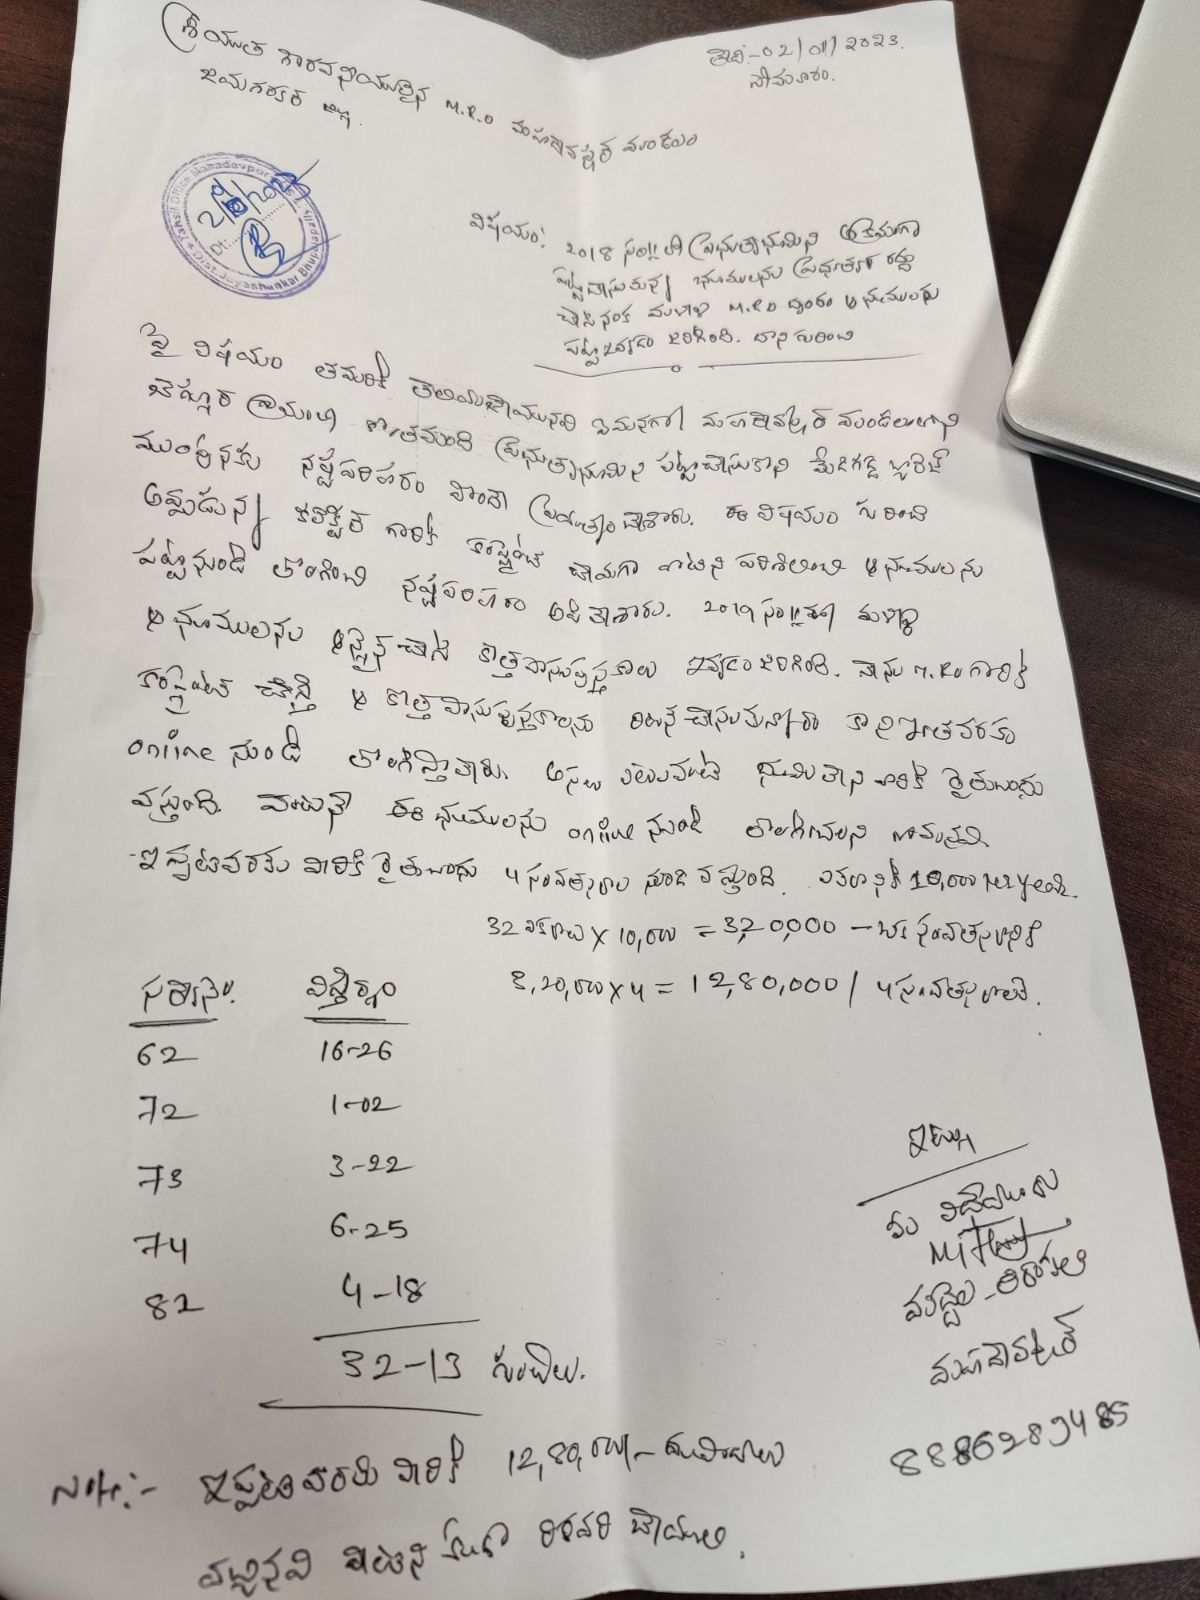 శ్రీయుత గౌరవనీయులైన M.R.O మహదేవపూర్ మండలం
జయశంకర్ జిల్లా.
తేది:-02/01/2023.
సోమవారం.
Tahsil Office Mahadevpur
Dist. Jayashankar Bhupalpally
Dt:
విషయం: 2018 సం॥లో ప్రభుత్వ భూమిని అక్రమంగా
పట్టా చేసుకున్న భూములను ప్రభుత్వం రద్దు
చేసినంక మళ్ళీ M.R.O ద్వారా ఆ భూములను
పట్టా ఇవ్వడం జరిగింది. దాని గురించి
పై విషయం తమరికి తెలియజేయునది ఏమనగా మహదేవపూర్ మండలంలోని
బెగ్లూర్ గ్రామంలో కొంతమంది ప్రభుత్వ భూమిని పట్టా చేసుకొని మేడిగడ్డ బ్యారేజ్
ముంపునకు నష్టపరిహారం పొందే ప్రయత్నం చేశారు. ఈ విషయం గురించి
అప్పుడున్న కలెక్టర్ గారికి కంప్లైంట్ చేయగా వాటిని పరిశీలించి ఆ భూములను
పట్టా నుండి తొలగించి నష్టపరిహారం ఆపివేశారు. 2019 సం॥లో మళ్ళీ
ఆ భూములను ఆన్లైన్ చేసి కొత్త పాసుపుస్తకాలు ఇవ్వడం జరిగింది. నేను M.R.O గారికి
కంప్లైంట్ చేస్తే ఆ కొత్త పాసుపుస్తకాలను రద్దు చేసుతున్నారు కాని ఇంతవరకు
online నుండి తొలగిస్తలేరు. అసలు ఎటువంటి భూమి లేని వారికి రైతుబంధు
వస్తుంది. వెంటనే ఈ భూములను online నుండి తొలగించాలని నా మనవి.
ఇప్పటివరకు వారికి రైతుబంధు 4 సంవత్సరాల నుండి వస్తుంది. ఎకరానికి 10,000 per year.
32 ఎకరాలు X 10,000 = 3,20,000 – ఒక సంవత్సరానికి
3,20,000 X 4 = 12,80,000 / 4 సంవత్సరాలకి.
సర్వే నెం. విస్తీర్ణం
62 16-26
72 1-02
73 3-22
74 6-25
82 4-18
32-13 గుంటలు.
ఇట్లు
మీ విధేయుడు
మహదేవపూర్
8886289485
Note:- ఇప్పటి వరకు వారికి 12,80,000/- రూపాయలు
వచ్చినవి వాటిని కూడా రికవరి చేయాలి.